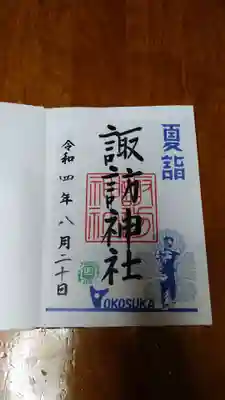 夏詣
諏訪神社
令和四年八月二十日
YOKOSUKA